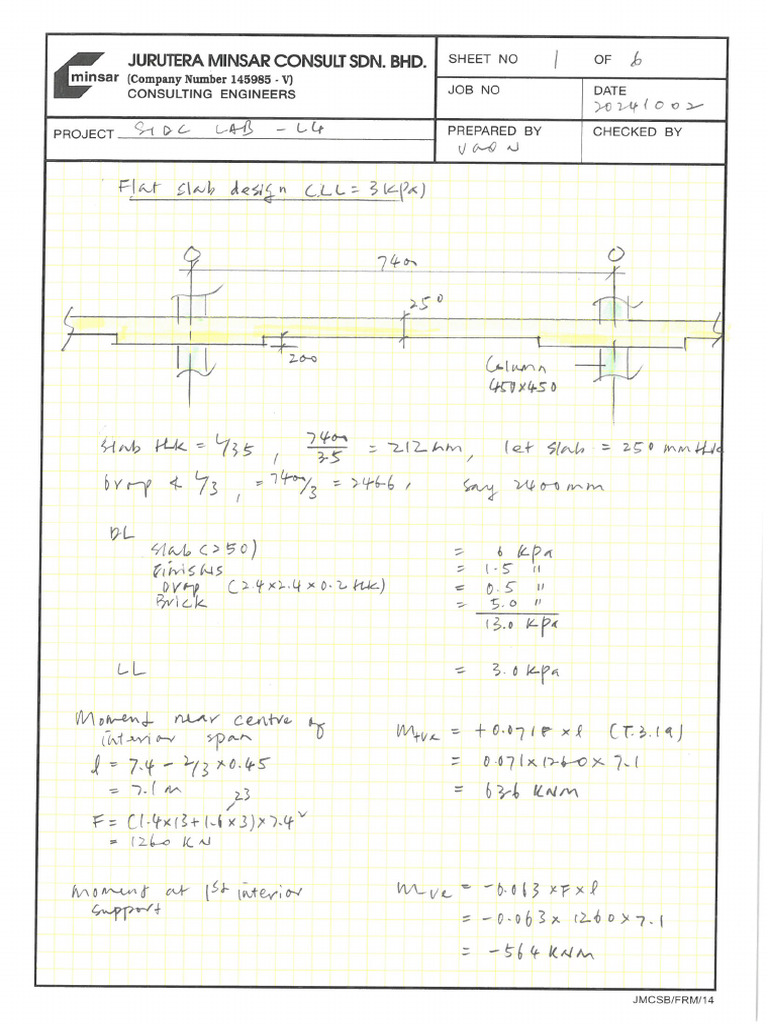 JURUTERA MINSAR CONSULT SDN. BHD.
minsar (Company Number 145985 - V)
CONSULTING ENGINEERS
SHEET NO 1 OF 6
JOB NO
DATE
20241002
PROJECT SIDC LAB - L4
PREPARED BY
CHECKED BY
Flat slab design (LL = 3 kPa)
7400
250
200
Column
450x450
Slab thk = L/35 , 7400/35 = 212 mm, let slab = 250 mm thk
Drop ≮ L/3 , = 7400/3 = 2466, say 2400mm
DL
Slab (250) = 6 kPa
Finishes = 1.5 "
Drop (2.4 x 2.4 x 0.2 thk) = 0.5 "
Brick = 5.0 "
13.0 kPa
LL = 3.0 kPa
Moment near centre of
interior span
M+ve = +0.071F x l (T.3.19)
l = 7.4 - 2/3 x 0.45
= 0.071 x 1260 x 7.1
= 7.1 m
= 636 KNM
23
F = (1.4x13+1.6x3)x7.4²
= 1260 KN
Moment at 1st interior
support
M-ve = -0.063 x F x l
= -0.063 x 1260 x 7.1
= -564 KNM
JMCSB/FRM/14